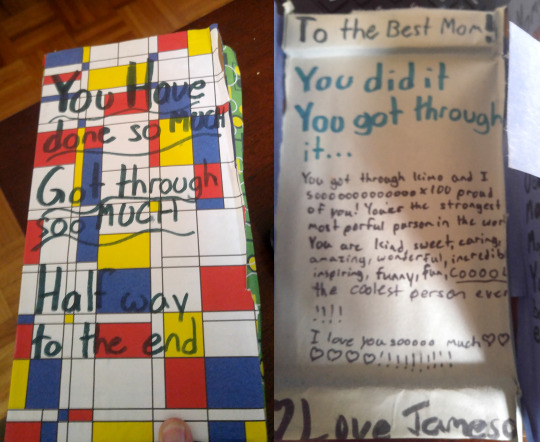 You Have
done so MUCH
Got through
soo MUCH
Half way
to the end
To the Best Mom!
You did it
You got through
it...
You got through kimo and I
sooooooooooooo x100 proud
of you! You'er the strongest
most porful parson in the wor
You are kind, sweet, caring,
amazing, wonderful, incredib
inspiring, funny, fun, COOOOL
the coolest person ever
!!!!
I love you sooooo much♡♡
♡♡♡♡!!!!!!!!!
Love James